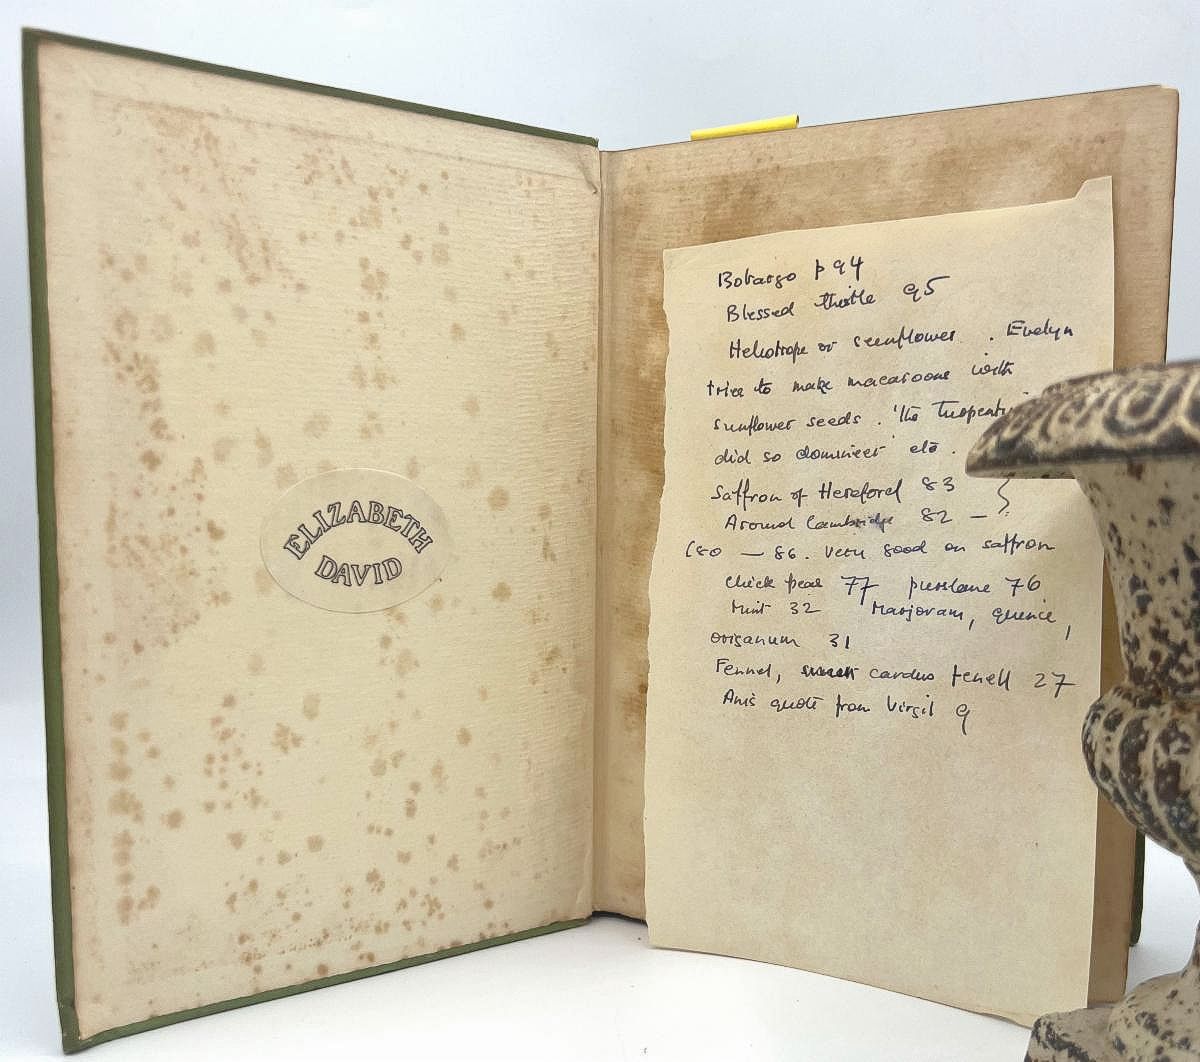 ELIZABETH
DAVID
Bobargo p 94
Blessed thistle 95
Heliotrope or sunflower . Evelyn
tries to make macaroons with
sunflower seeds . 'the
did so domineer' etc .
Saffron of Hereford 83
Around Cambridge 82 —
(80 — 86. very good on saffron
Chick peas 77 purslane 76
Mint 32 Marjoram, quince,
origanum 31
Fennel, cardus fenell 27
Anis quote from Virgil 9